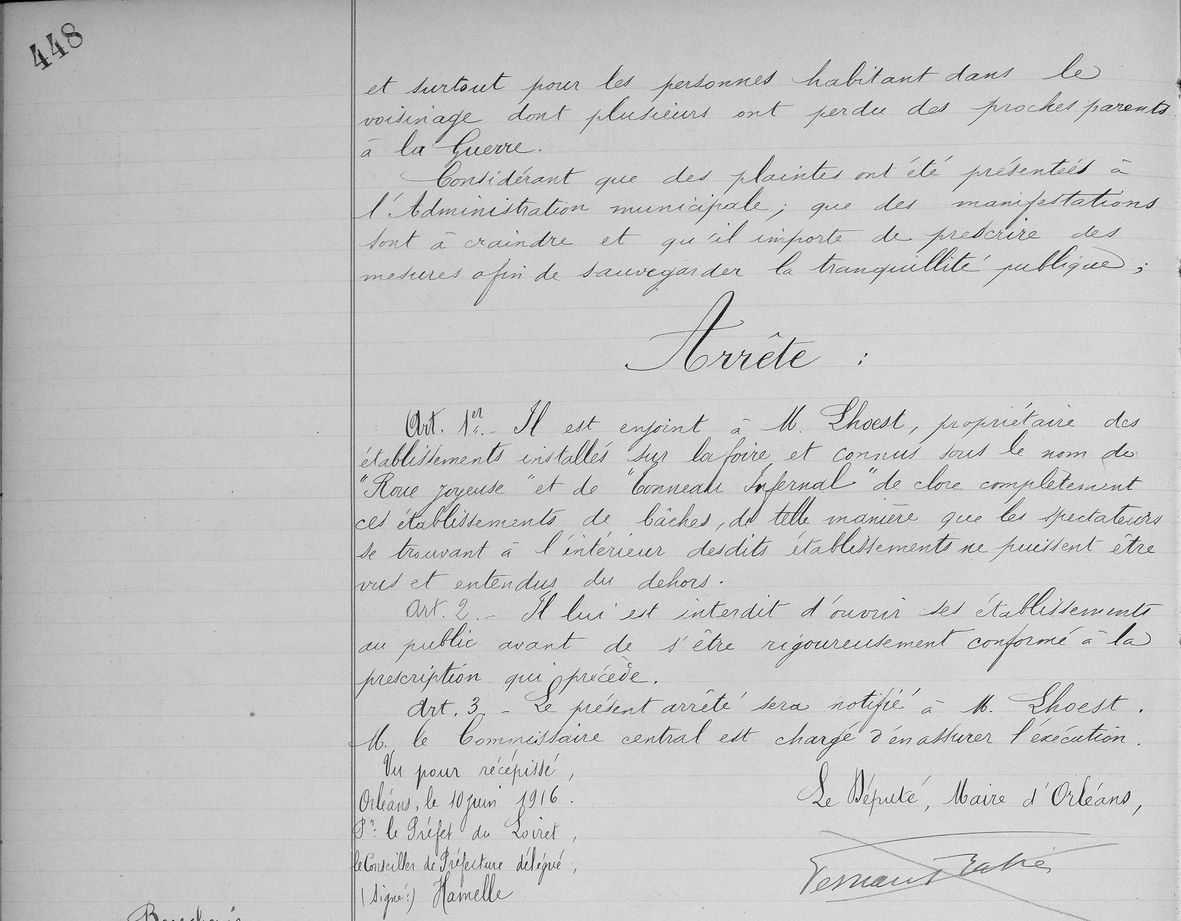 448
et surtout pour les personnes habitant dans le
voisinage dont plusieurs ont perdu des proches parents
à la Guerre.
Considérant que des plaintes ont été présentées à
l'Administration municipale; que des manifestations
sont à craindre et qu'il importe de prescrire des
mesures afin de sauvegarder la tranquillité publique;
Arrête :
Art. 1er. - Il est enjoint à M. Lhoest, propriétaire des
établissements installés sur la foire et connus sous le nom de
"Roue joyeuse" et de "Tonneau Infernal" de clore complètement
ces établissements de bâches, de telle manière que les spectateurs
se trouvant à l'intérieur desdits établissements ne puissent être
vus et entendus du dehors.
Art. 2. - Il lui est interdit d'ouvrir ses établissements
au public avant de s'être rigoureusement conformé à la
prescription qui précède.
Art. 3 - Le présent arrêté sera notifié à M. Lhoest.
M. le Commissaire central est chargé d'en assurer l'exécution.
Vu pour récépissé,
Orléans, le 10 juin 1916.
Pr. le Préfet du Loiret,
le Conseiller de Préfecture délégué,
(signé:) Hamelle
Le Député, Maire d'Orléans,
Fernand Rabier